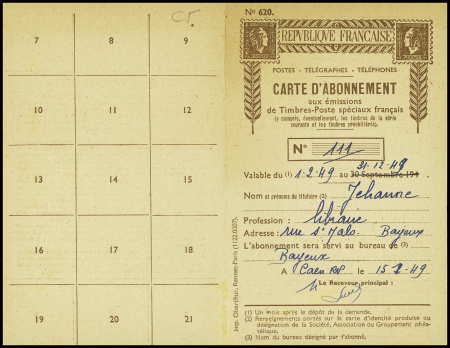 7 8 9
10 11 12
13 14 15
16 17 18
19 20 21
Imp. Oberthur, Rennes-Paris (1122.0007).
No 620.
REPVBLIQVE FRANÇAISE
POSTES - TÉLÉGRAPHES - TÉLÉPHONES
CARTE D'ABONNEMENT
aux émissions
de Timbres-Poste spéciaux français
(y compris, éventuellement, les timbres de la série
courante et les timbres préoblitérés).
No 111
31-12-49
Valable du (1) 1-2-49 au 30 Septembre 194
Nom et prénoms du titulaire (2) Jehanne
Profession : libraire
Adresse : rue St Malo Bayeux
L'abonnement sera servi au bureau de (3)
Bayeux
A Caen RP le 15-2-49
Le Receveur principal :
(1) Un mois après le dépôt de la demande.
(2) Renseignements portés sur la carte d'identité produite ou
désignation de la Société, Association ou Groupement phila-
télique.
(3) Nom du bureau désigné par l'abonné.